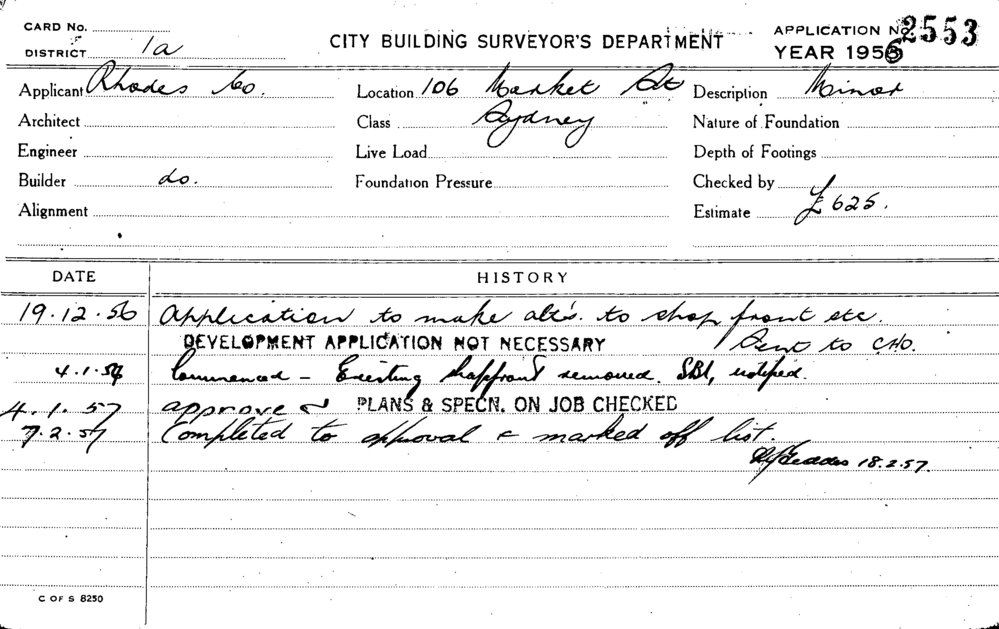 CARD No.
DISTRICT 1a
CITY BUILDING SURVEYOR'S DEPARTMENT
APPLICATION No. 2553
YEAR 1956
Applicant Rhodes Co. Location 106 Market St Description Minor
Architect Class Sydney Nature of Foundation
Engineer Live Load Depth of Footings
Builder do. Foundation Pressure Checked by
Alignment Estimate £625.
DATE HISTORY
19.12.56 Application to make alts. to shop front etc.
DEVELOPMENT APPLICATION NOT NECESSARY Sent to C.H.O.
4.1.57 Commenced – Existing shopfront removed. SBI, notified.
4.1.57 approved PLANS & SPECN. ON JOB CHECKED
7.2.57 Completed to approval & marked off list.
Geddes 18.2.57.
C OF S 8250